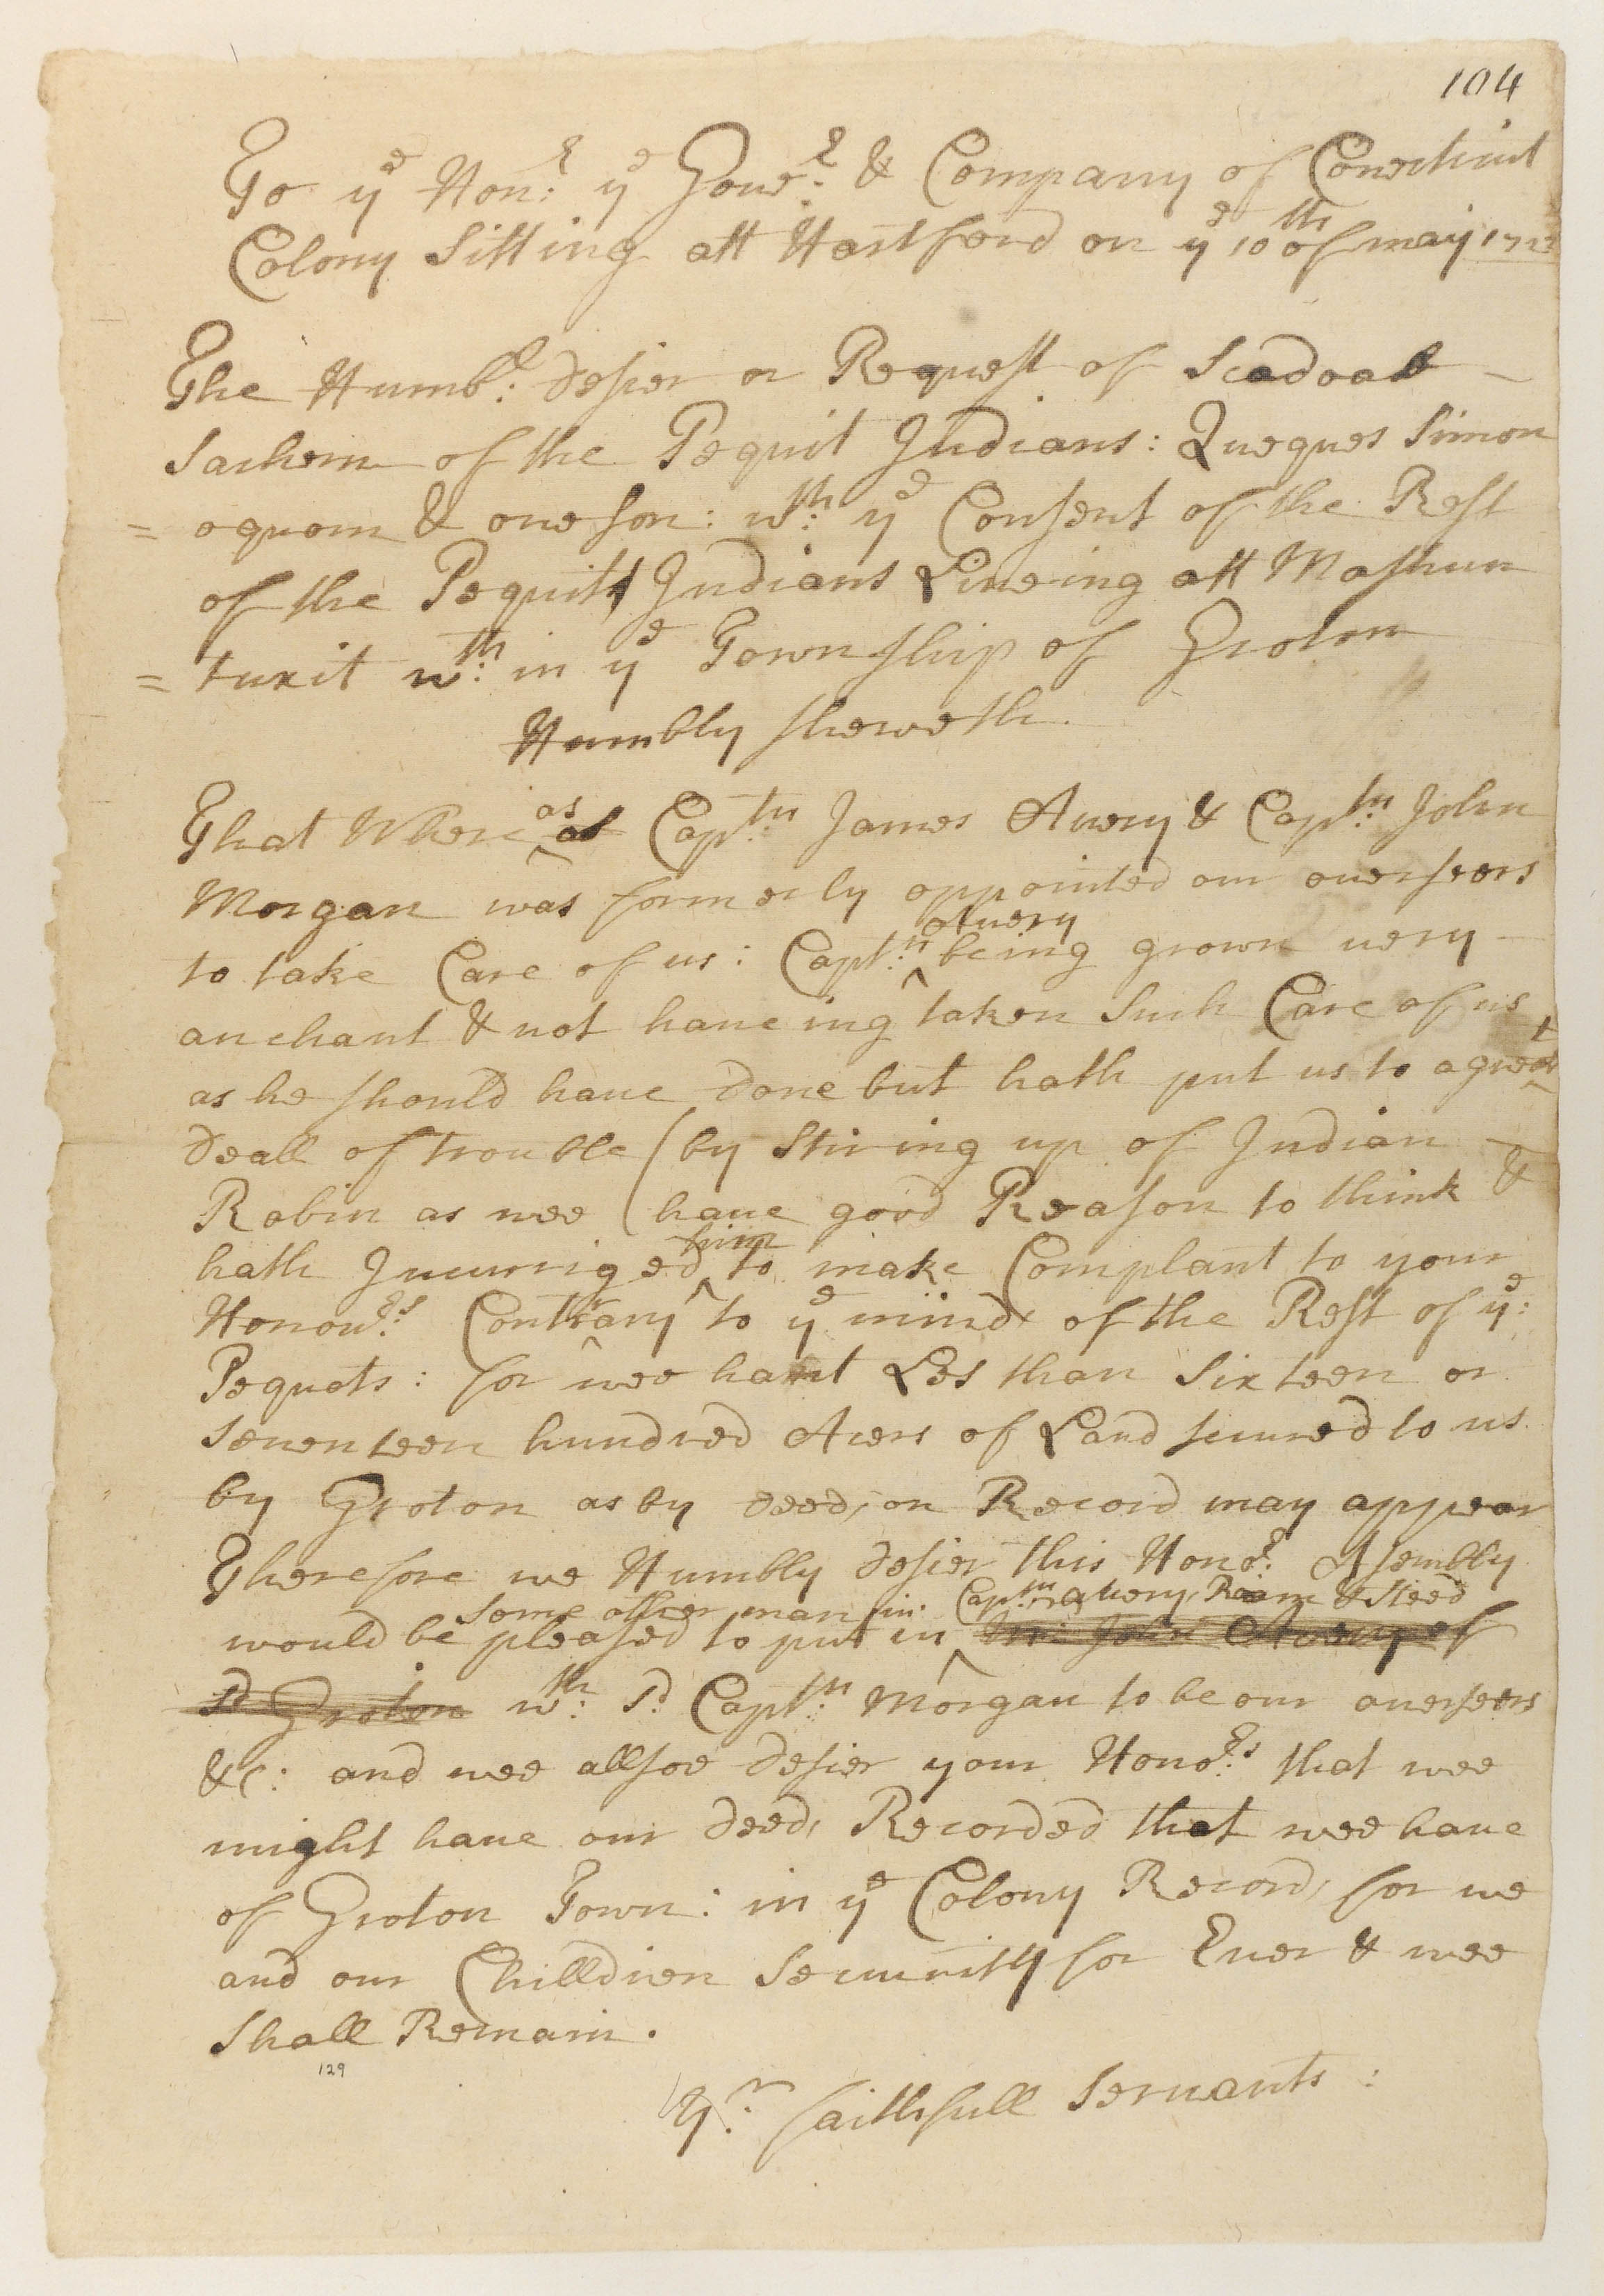 104
To yͤ Honͬ: yͤ Goveͬ: & Company of Conecticut
Colony Sitting att Hartford on yͤ 10th of may 1722
The Humbˡ: desier or Request of Scadoab
Sachem of the Pequit Indians: Queques Simon
= oquom & oneson: wth: yͤ Consent of the Rest
of the Pequitt Indians Liveing att Mashun
= tuxit wth: in yͤ Township of Groton
Humbly sheweth.
as
That Where Captn: James Avery & Captn: John
Morgan was formerly appointed our overseers
Avery
to take Care of us: Captn: ^ being grown very
anchant & not haveing taken Such Care of us
as he should have done but hath put us to a great
deall of trouble (by Stiring up of Indian
Robin as wee (have good Reason to think &
him
hath Incurriged ^ to make Complant to your
Honouͬˢ: Contrary to yͤ minds of the Rest of yͤ:
Pequots: for wee hant Les than Sixteen or
Seventeen hundred Acers of Land secured to us
by Groton as by deeds on Record may appear
Therefore we Humbly desier this Honoͬ: Asembly
some other man in Captn: Avery Room & Steed
would be pleased to put in ^ Mr: John Avery of
sd Groton wth: sd Captn: Morgan to be our overseers
&c: and wee allsoe desier your Honoͬˢ: that wee
might have our deeds Recorded that wee have
of Groton Town: in yͤ Colony Records for we
and our Chilldren Securrity for Ever & wee
Shall Remain.
129
Yͬ: faithfull Servants: